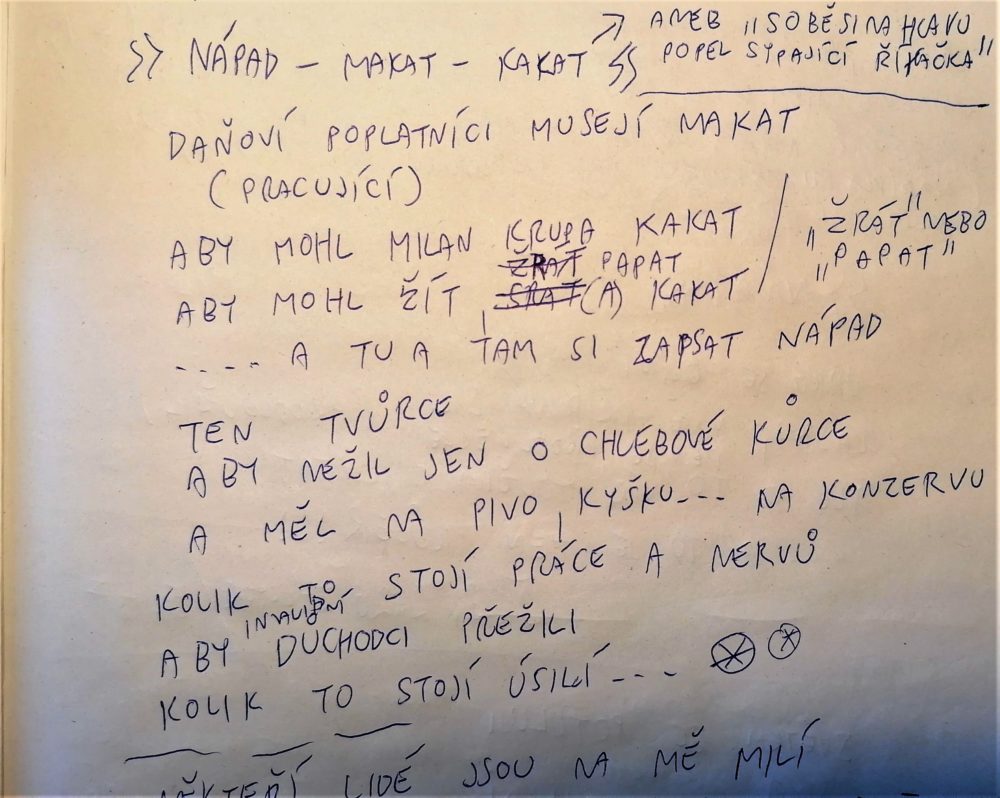 NÁPAD – MAKAT – KAKAT
ANEB „SOBĚ SI NA HLAVU
POPEL SYPAJÍCÍ ŘÍKAČKA"
DAŇOVÍ POPLATNÍCI MUSEJÍ MAKAT
(PRACUJÍCÍ)
ABY MOHL MILAN KRUPA KAKAT
ŽRÁT PAPAT
ABY MOHL ŽÍT, SRAT (A) KAKAT
/ „ŽRÁT" NEBO
„PAPAT"
.... A TU A TAM SI ZAPSAT NÁPAD
TEN TVŮRCE
ABY NEŽIL JEN O CHLEBOVÉ KŮRCE
A MĚL NA PIVO, KYŠKU --- NA KONZERVU
KOLIK TO STOJÍ PRÁCE A NERVŮ
INVALIDNÍ
ABY DUCHODCI PŘEŽILI
KOLIK TO STOJÍ ÚSILÍ ----
NĚKTEŘÍ LIDÉ JSOU NA MĚ MILÍ